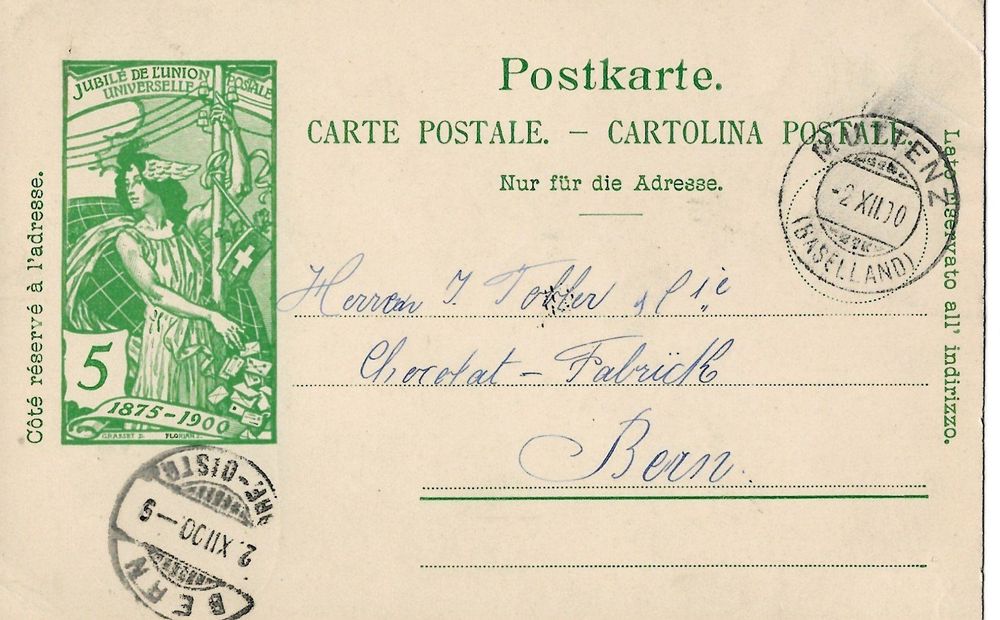 JUBILÉ DE L'UNION
UNIVERSELLE POSTALE
5
1875-1900
GRASSET D. FLORIAN
Côté réservé à l'adresse.
Postkarte.
CARTE POSTALE. — CARTOLINA POSTALE.
Nur für die Adresse.
MUTTENZ
-2 XII 00
(BASELLAND)
Lato riservato all' indirizzo.
Herren J. Tobler & Cie
Chocolat - Fabrik
Bern.
BERN
2. XII 00.-9
BRF.-DISTR.